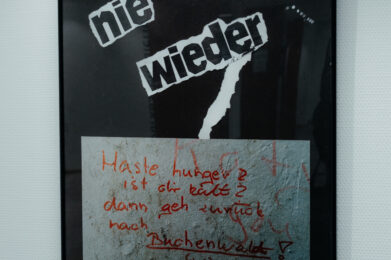 nie
wieder
Haste hunger?
ist dir kalt?
dann geh zurück
nach
Buchenwald!